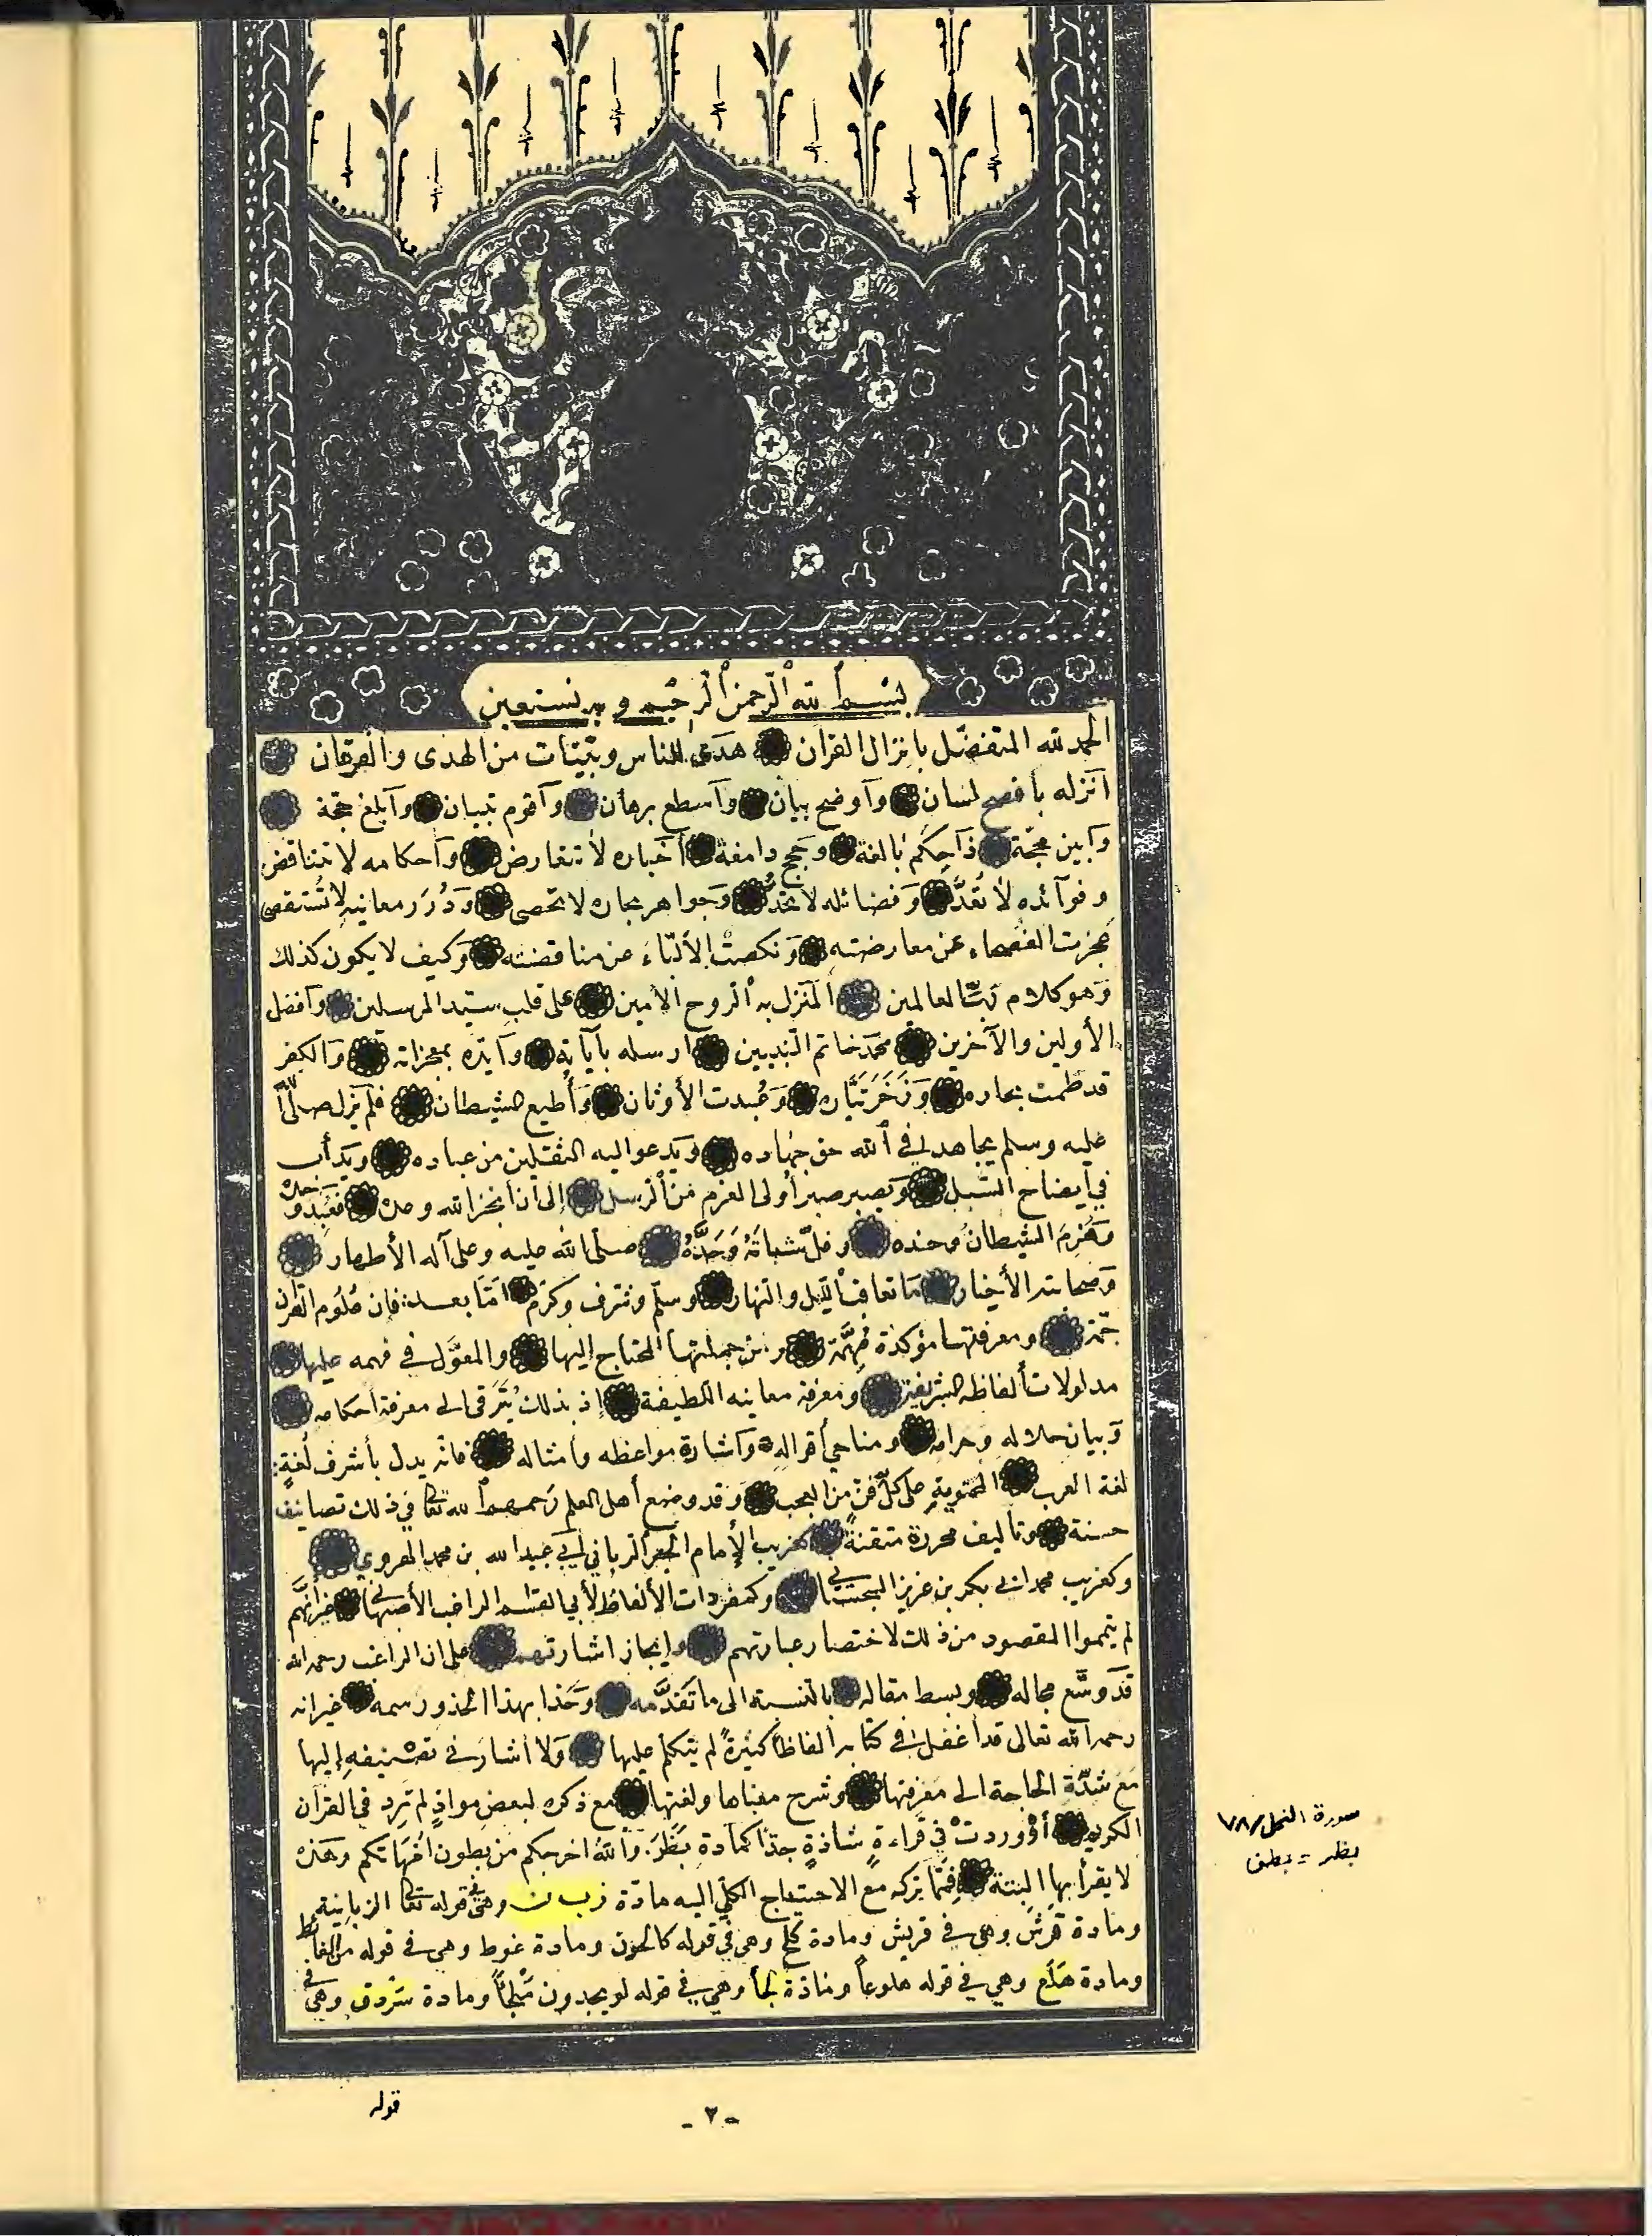 بسم الله الرحمن الرحيم وبه نستعين
الحمد لله المتفضل بانزال القرآن هدى للناس وبينات من الهدى والفرقان
أنزله بأفصح لسان وأوضح بيان وأسطع برهان وأقوم تبيان وأبلغ حجة
وأبين محجة ذا حكم بالغة وحجج دامغة أخباره لا تتعارض وأحكامه لا تتناقض
وفوآئده لا تُعَدُّ وفضائله لا تُحَدُّ وجواهر بحاره لا تحصى وَدُرَر معانيه لا تُستقصى
عجزت الفصحاء عن معارضته ونكصت الألبّاء عن مناقضته وكيف لا يكون كذلك
وهو كلام ربّ العالمين المنزل به الروح الأمين على قلب سيد المرسلين وأفضل
الأولين والآخرين محمد خاتم النبيين ارسله بآياته وأيّده بمعجزاته والكفر
قد طمت بحاره وزخر تيّاره وعُبدت الأوثان وأُطيع الشيطان فلم يزل صلى الله
عليه وسلم يجاهد في الله حق جهاده ويدعو اليه الثقلين من عباده ويدأب
في أيضاح السّبل ويصبر صبر أولى العزم من الرسل إلى ان أنجز الله وعده فعُبد وحده
وهُزِمَ الشيطان وجنده وفلّ شباتَهُ وَحَدَّهُ صلى الله عليه وعلى آله الأطهار
وصحابته الأخيار ما تعاقب الليل والنهار وسلّم وشرف وكرّم امّا بعد: فإن علوم القرآن
جمّة ومعرفتها مؤكدة مُهِمَّة ومن جملتها المحتاج إليها والمعوّل في فهمه عليها
مدلولات ألفاظه الشريفة ومعرفة معانيه اللطيفة إذ بذلك يُتَرَقى الى معرفة احكامه
وبيان حلاله وحرامه ومناحي أقواله وأشارة مواعظه وامثاله فانه يدل بأشرف لُغةٍ:
لغة العرب المحتوية على كلّ فنّ من العجب وقد وضع أهل العلم رحمهم الله تعالى في ذلك تصانيف
حسنة وتآليف محررة متقنة كغريب الإمام الحبر الرباني أبي عبيد الله بن محمد الهروي
وكغريب محمد ابن بكر بن عزيز السجستاني وكمفردات الألفاظ لأبي القاسم الراغب الأصبهاني غير أنّهم
لم يتمموا المقصود من ذلك لاختصار عبارتهم وإيجاز اشارتهم على ان الراغب رحمه الله
قد وسّع مجاله وبسط مقاله بالنسبة الى ما تقدّمه وحَذا بهذا الحذو رسمه غير انه
رحمه الله تعالى قد أغفل في كتابه ألفاظاً كثيرةً لم يتكلم عليها ولا أشار في تصنيفه إليها
مع شدّة الحاجة الى معرفتها وشرح معناها ولغتها مع ذكره لبعض موادٍ لم تَرِد في القرآن
الكريم أو وردتْ في قراءةٍ شاذةٍ جدّاً كمادة بَظَرَ. والله اخرجكم من بطون أمّهاتكم وهذه
لا يقرأ بها البتة فممّا يتركه مع الاحتياج الكلّي اليه مادّة زبن وهى في قوله تعالى الزبانية
ومادة قرش وهى في قريش ومادة كلح وهى في قوله كالحون ومادة غوط وهى في قوله من الغائط
ومادة هَلَع وهي في قوله هلوعاً ومادّة لجأ وهي في قوله لو يجدون مَلْجَأً ومادة سَرْدق وهى في
قوله
- ٢ -
سورة النحل / ٧٨
بظر = بطن